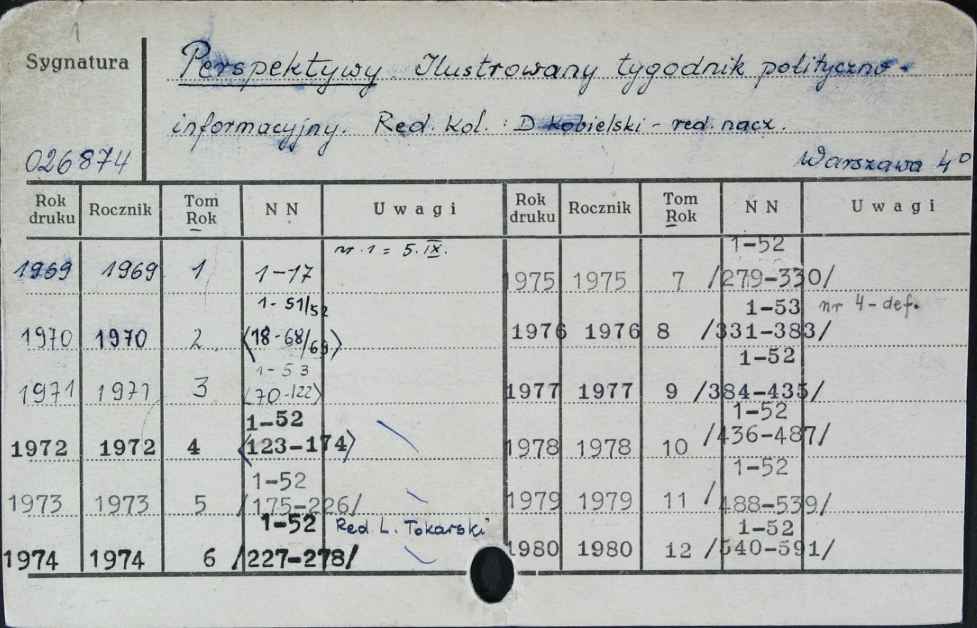 1
Sygnatura
Perspektywy Ilustrowany tygodnik polityczno-
informacyjny. Red. Kol.: D Kobielski - red. nacz.
026874
Warszawa 4°
Rok druku Rocznik Tom Rok NN Uwagi Rok druku Rocznik Tom Rok NN Uwagi
nr. 1 = 5. IX.
1969 1969 1 1-17
1-51/52
1970 1970 2 (18-68/69)
1-53
1971 1971 3 (70-122)
1-52
1972 1972 4 (123-174)
1-52
1973 1973 5 /175-226/
1-52 Red L. Tokarski
1974 1974 6 /227-278/
1-52
1975 1975 7 /279-330/
1-53 nr 4-def.
1976 1976 8 /331-383/
1-52
1977 1977 9 /384-435/
1-52
1978 1978 10 /436-487/
1-52
1979 1979 11 /488-539/
1-52
1980 1980 12 /540-591/